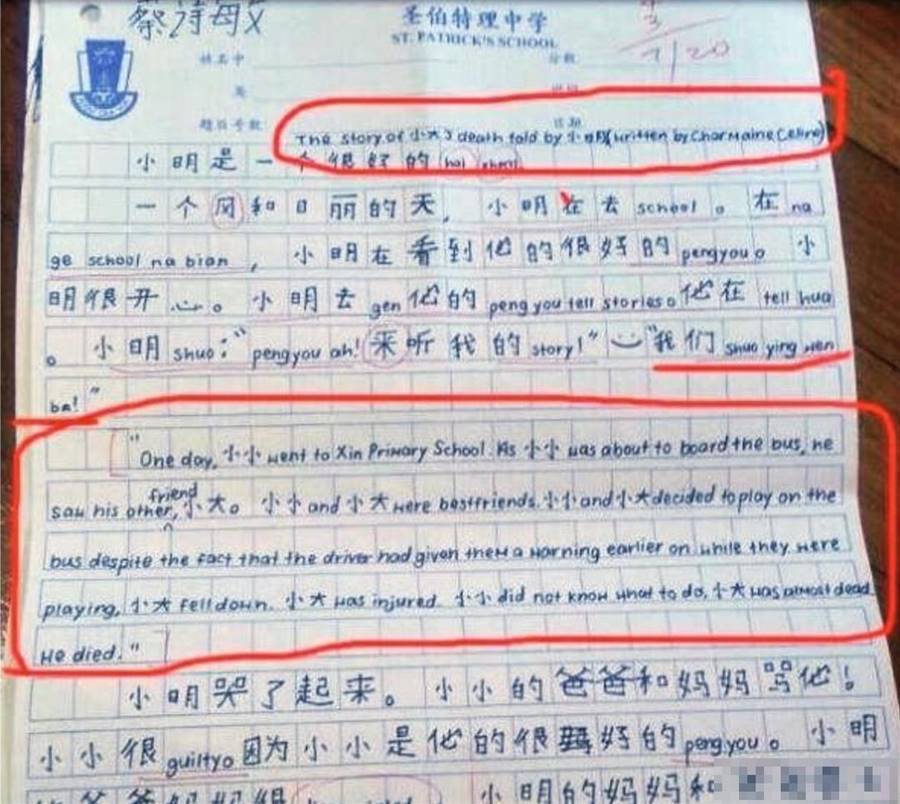 蔡诗敏
圣伯特理中学
ST. PATRICK'S SCHOOL
姓名中 分数
英
7/20
题目号数 日期
The story of 小大's death told by 小明(written by Charmaine Celine)
小明是一个很好的 hai
一个风和日丽的天，小明在去 school。在 na
ge school na bian，小明在看到他的很好的 pengyou。小
明很开心。小明去 gen 他的 peng you tell stories。他在 tell hua
。小明 shuo："pengyou ah! 来听我的 story!" "我们 shuo ying wen
ba!"
"One day, 小小 went to Xin Primary School. As 小小 was about to board the bus, he
saw his other friend, 小大。小小 and 小大 were bestfriends. 小小 and 小大 decided to play on the
bus despite the fact that the driver had given them a warning earlier on while they were
playing, 小大 fell down. 小大 was injured. 小小 did not know what to do, 小大 was almost dead.
He died."
小明哭了起来。小小的爸爸和妈妈骂他！
小小很 guilty。因为小小是他的很好的 peng you。小明
小明的妈妈和